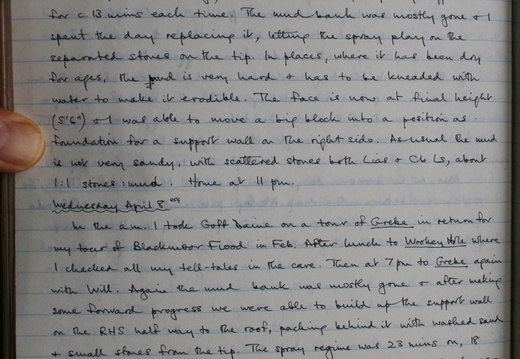 for c.13 mins each time. The mud bank was mostly gone & I
spent the day replacing it, letting the spray play on the
separated stones on the tip. In places, where it has been dry
for ages, the mud is very hard & has to be kneaded with
water to make it erodible. The face is now at final height
(5'6") & I was able to move a big block into a position as
foundation for a support wall on the right side. As usual the mud
is not very sandy, with scattered stones both Lias & Cb Ls, about
1:1 stones:mud. Home at 11 pm.
Wednesday April 8th
In the a.m. I took Goff on a tour of Grebe in return for
my tour of Blackmoor Flood in Feb. After lunch to Wookey Hole where
I checked all my tell-tales in the cave. Then at 7pm to Grebe again
with Will. Again the mud bank was mostly gone & after making
some forward progress we were able to build up the support wall
on the RHS half way to the roof, packing behind it with washed sand
& small stones from the tip. The spray regime was 23 mins on, 18